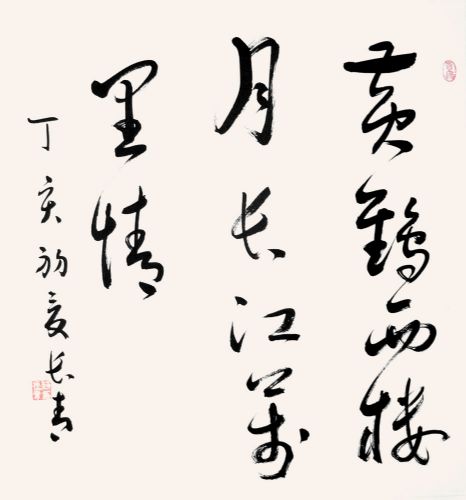 黄鶴西楼
月长江萬
里情
丁亥初夏长青